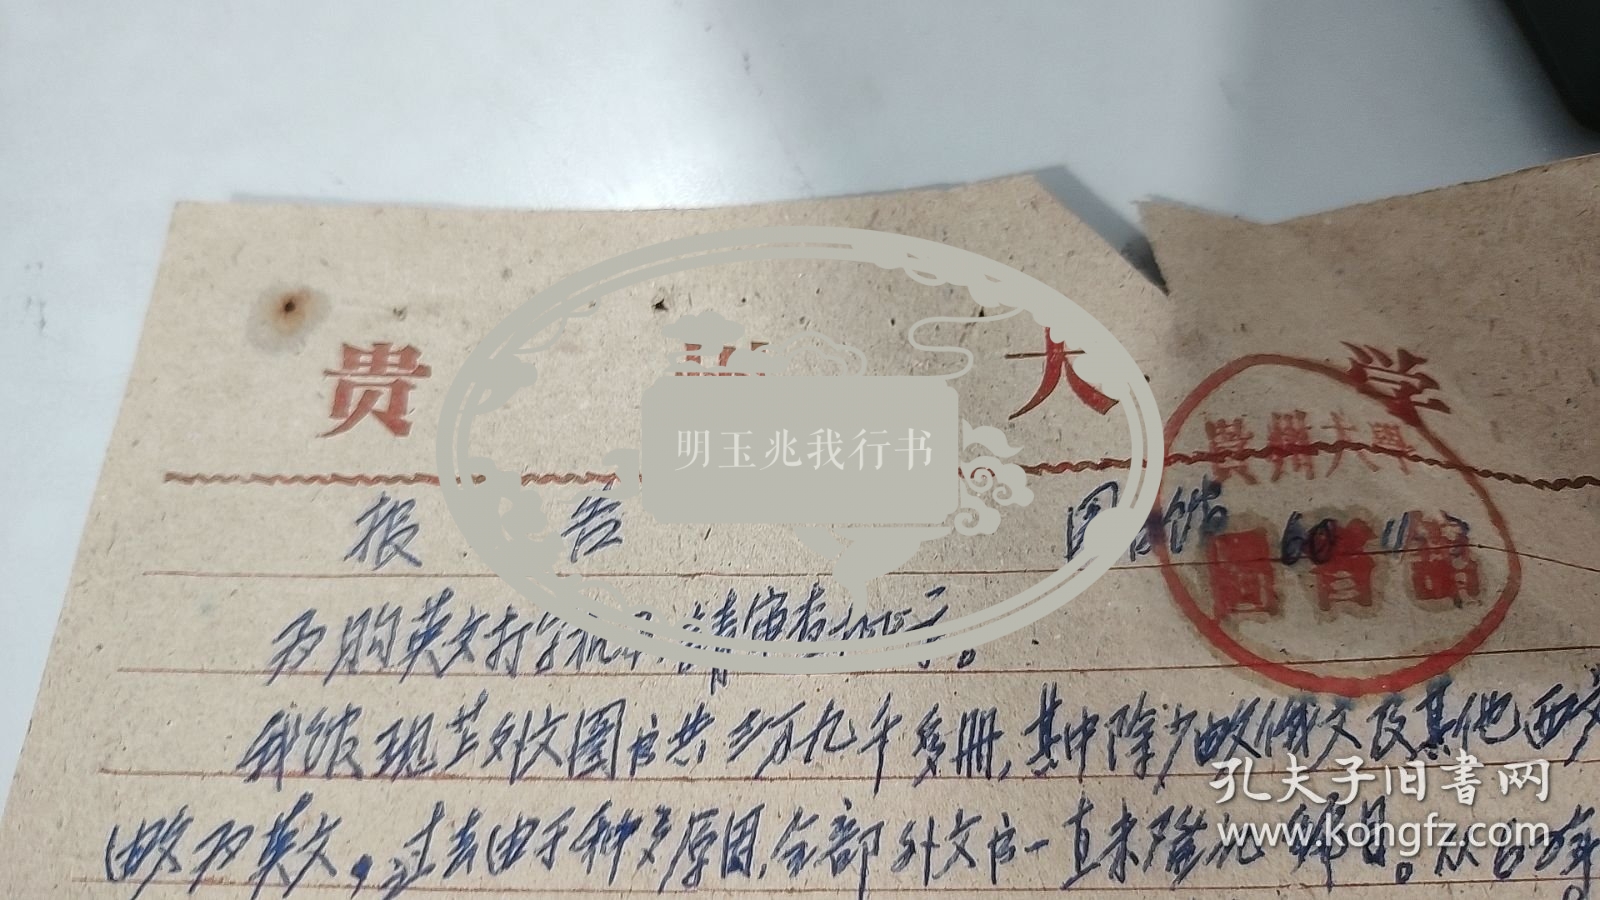 贵 州 大 学
贵州大學
圖書館
报 告 图书馆 60 11
为购英文打字机 请审查
我馆现共外文图书共 万九千多册,其中除少数俄文及其他西文
为英文。过去由于种种原因,全部外文书一直未 编目。从60年
明玉兆我行书
孔夫子旧書网
www.kongfz.com